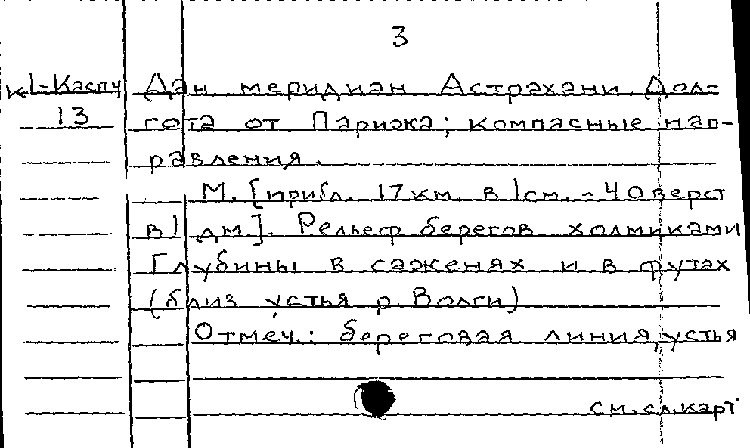 3
К1-Касп
13
Дан меридиан Астрахани Дол=
гота от Парижа; компасные нап-
равления.
М. [прибл. 17 км. в 1 см. ~ 40 верст
в 1 дм.]. Рельеф берегов холмиками
Глубины в саженях и в футах
(близ устья р. Волги)
Отмеч.: береговая линия, устья
см. сл. карт